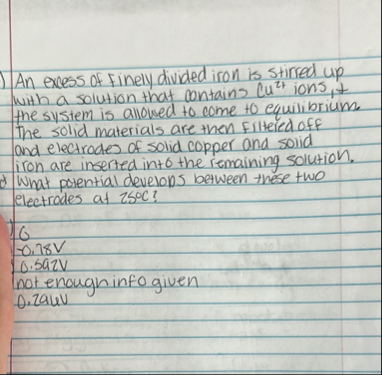 ) An excess of Finely divided iron is stirred up
with a solution that contains Cu²⁺ ions, +
the system is allowed to come to equilibrium.
The solid materials are then filtered off
and electrodes of solid copper and solid
iron are inserted into the remaining solution.
What potential develops between these two
electrodes at 25°C?
0
-0.78V
0.592V
not enough info given
0.296V